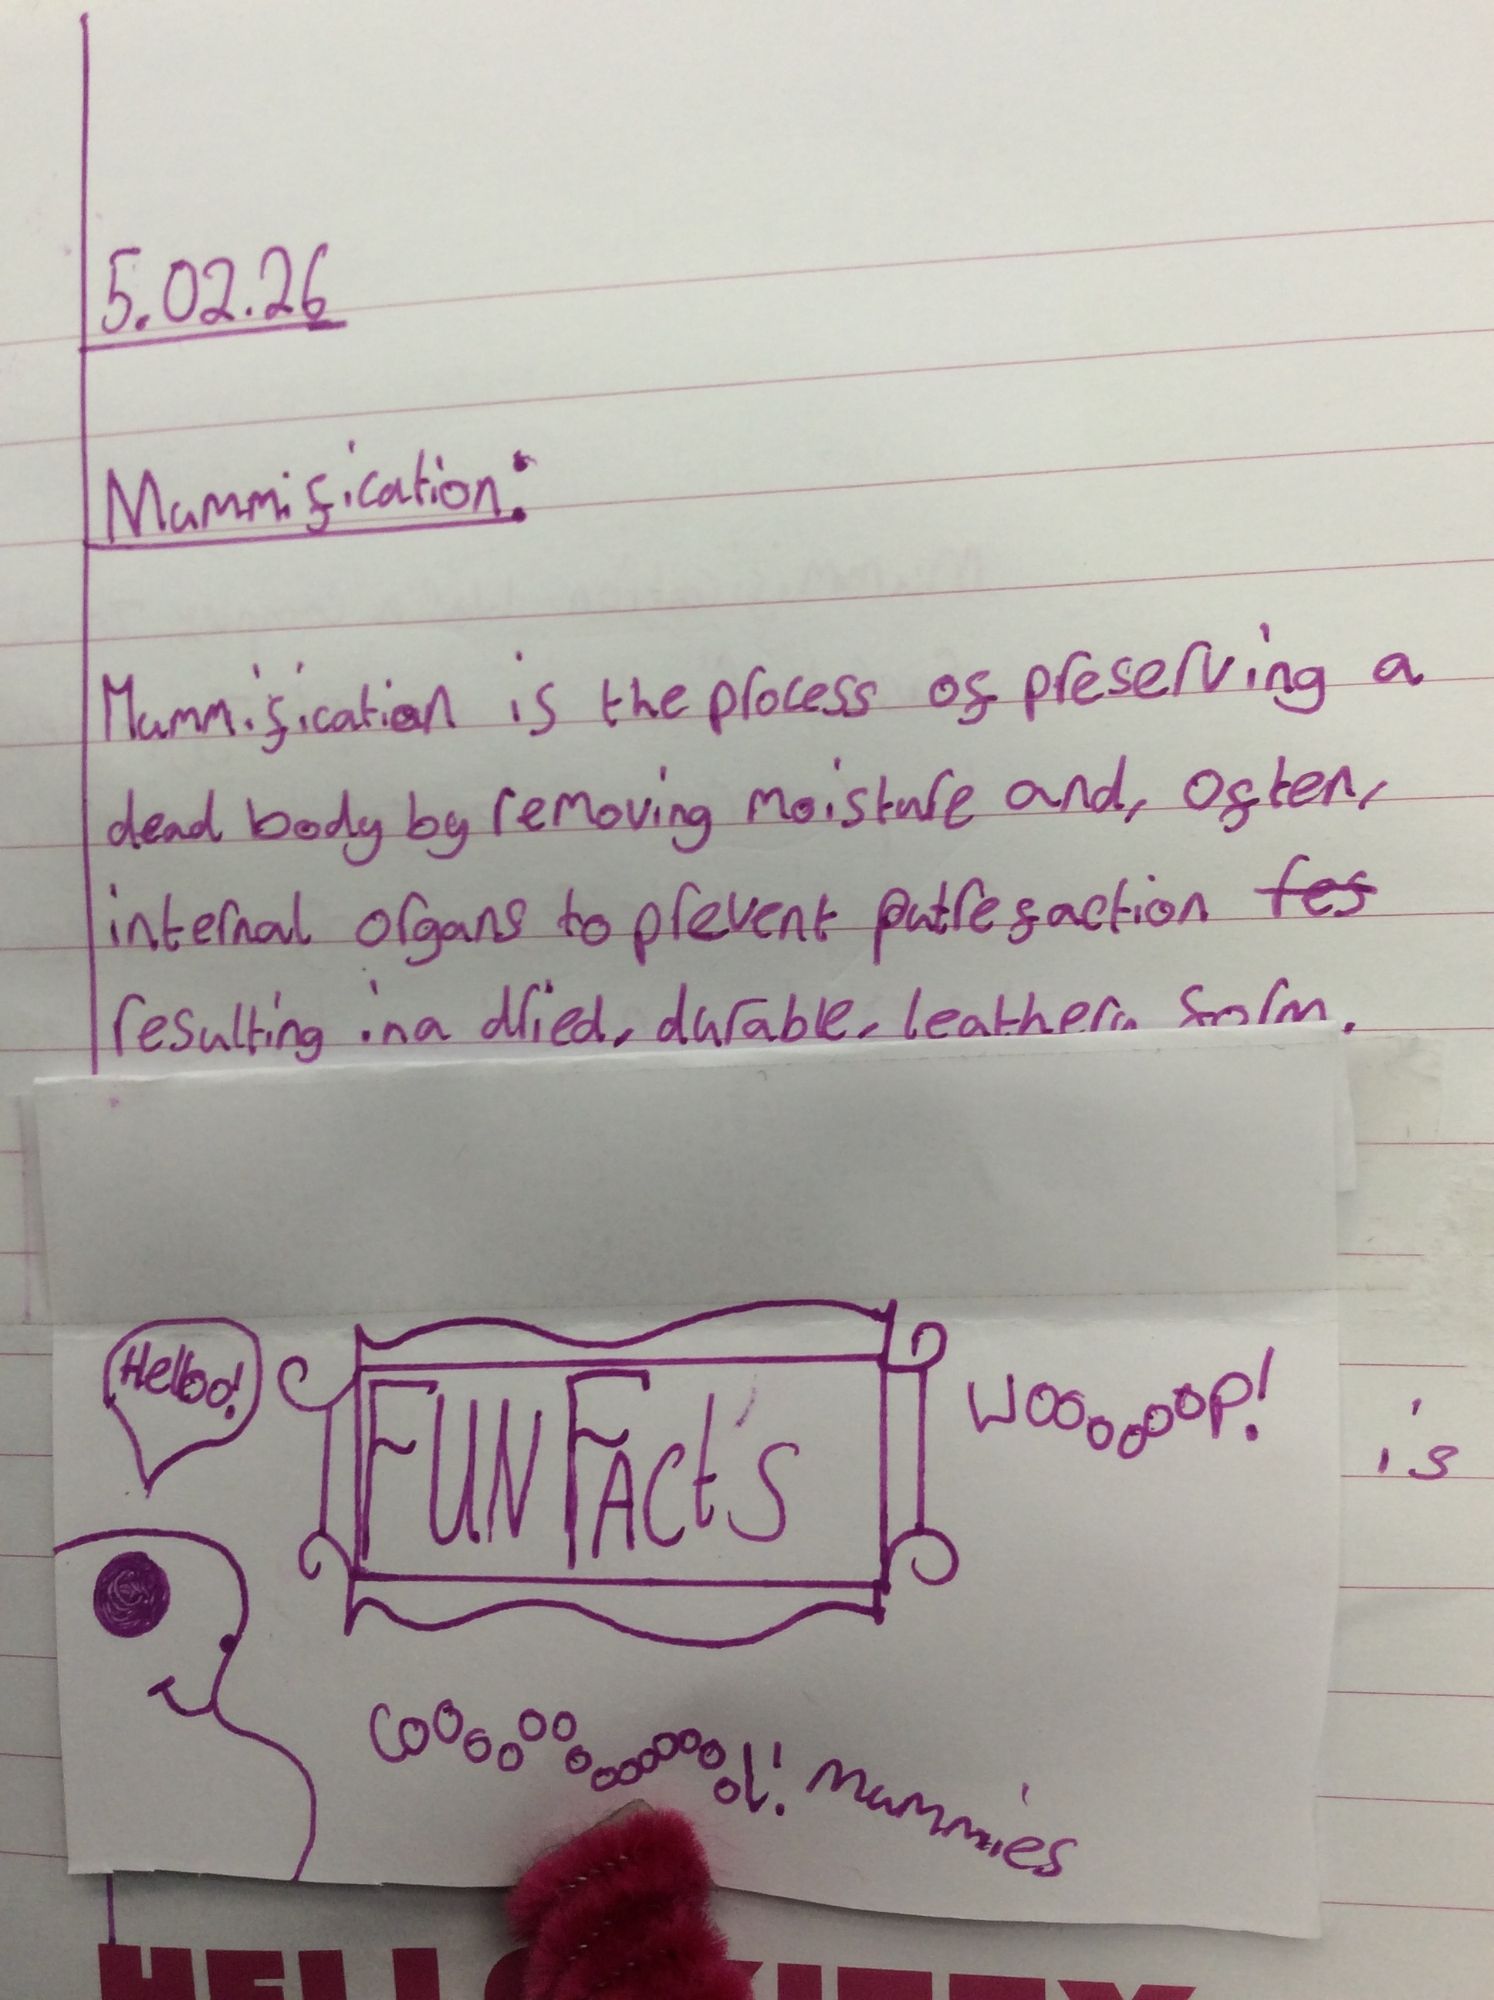 5.02.26
Mummification:
Mummification is the process of preserving a
dead body by removing moisture and, often,
internal organs to prevent putrefaction res
resulting in a dried, durable, leathery form.
Helloo!
FUN FACt'S
WOOOOOOOP!
is
COOOOOOOOOOOOOOOl! Mummies
HELLO KITTY